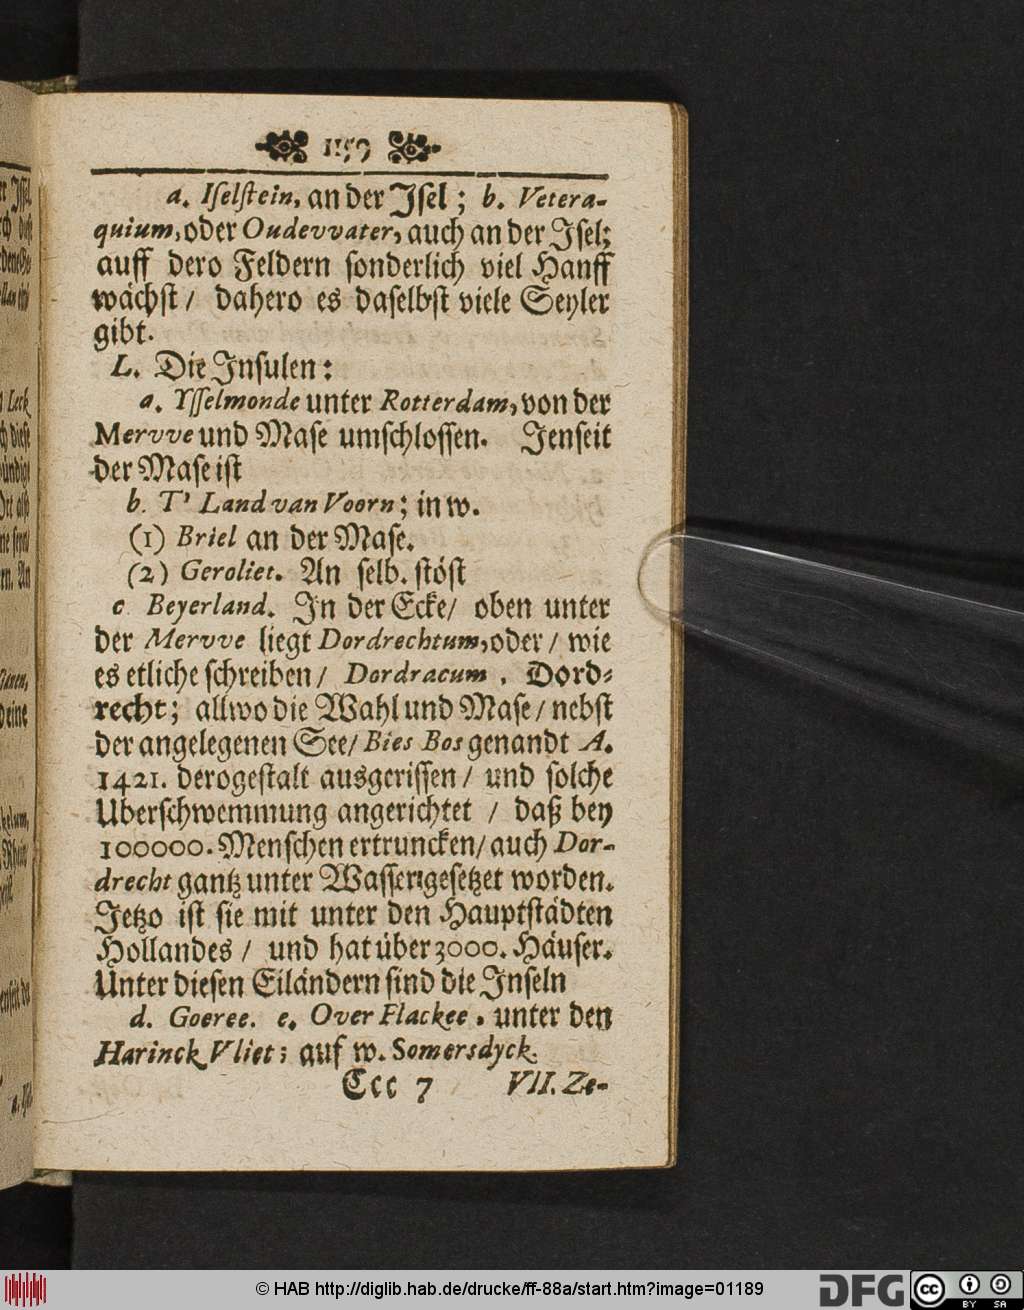 1159
a. Iſelſtein, an der Jſel; b. Vetera-
quium, oder Oudevvater, auch an der Jſel;
auff dero Feldern ſonderlich viel Hanff
wächſt / dahero es daſelbſt viele Seyler
gibt.
L. Die Inſulen:
a. Yſſelmonde unter Rotterdam, von der
Mervve und Maſe umſchloſſen. Jenſeit
der Maſe iſt
b. T' Land van Voorn; in w.
(1) Briel an der Maſe.
(2) Geroliet. An ſelb. ſtöſt
c Beyerland. In der Ecke / oben unter
der Mervve liegt Dordrechtum, oder / wie
es etliche ſchreiben / Dordracum, Dord⸗
recht; allwo die Wahl und Maſe / nebſt
der angelegenen See / Bies Bos genandt A.
1421. derogeſtalt ausgeriſſen / und ſolche
Uberſchwemmung angerichtet / daß bey
100000. Menſchen ertruncken / auch Dor-
drecht gantz unter Waſſer geſetzet worden.
Jetzo iſt ſie mit unter den Hauptſtädten
Hollandes / und hat über 3000. Häuſer.
Unter dieſen Eiländern ſind die Inſeln
d. Goeree. e. Over Flackee, unter den
Harinck Vliet; auf w. Somersdyck.
Ccc 7 VII. Ze-
© HAB http://diglib.hab.de/drucke/ff-88a/start.htm?image=01189
DFG cc BY SA